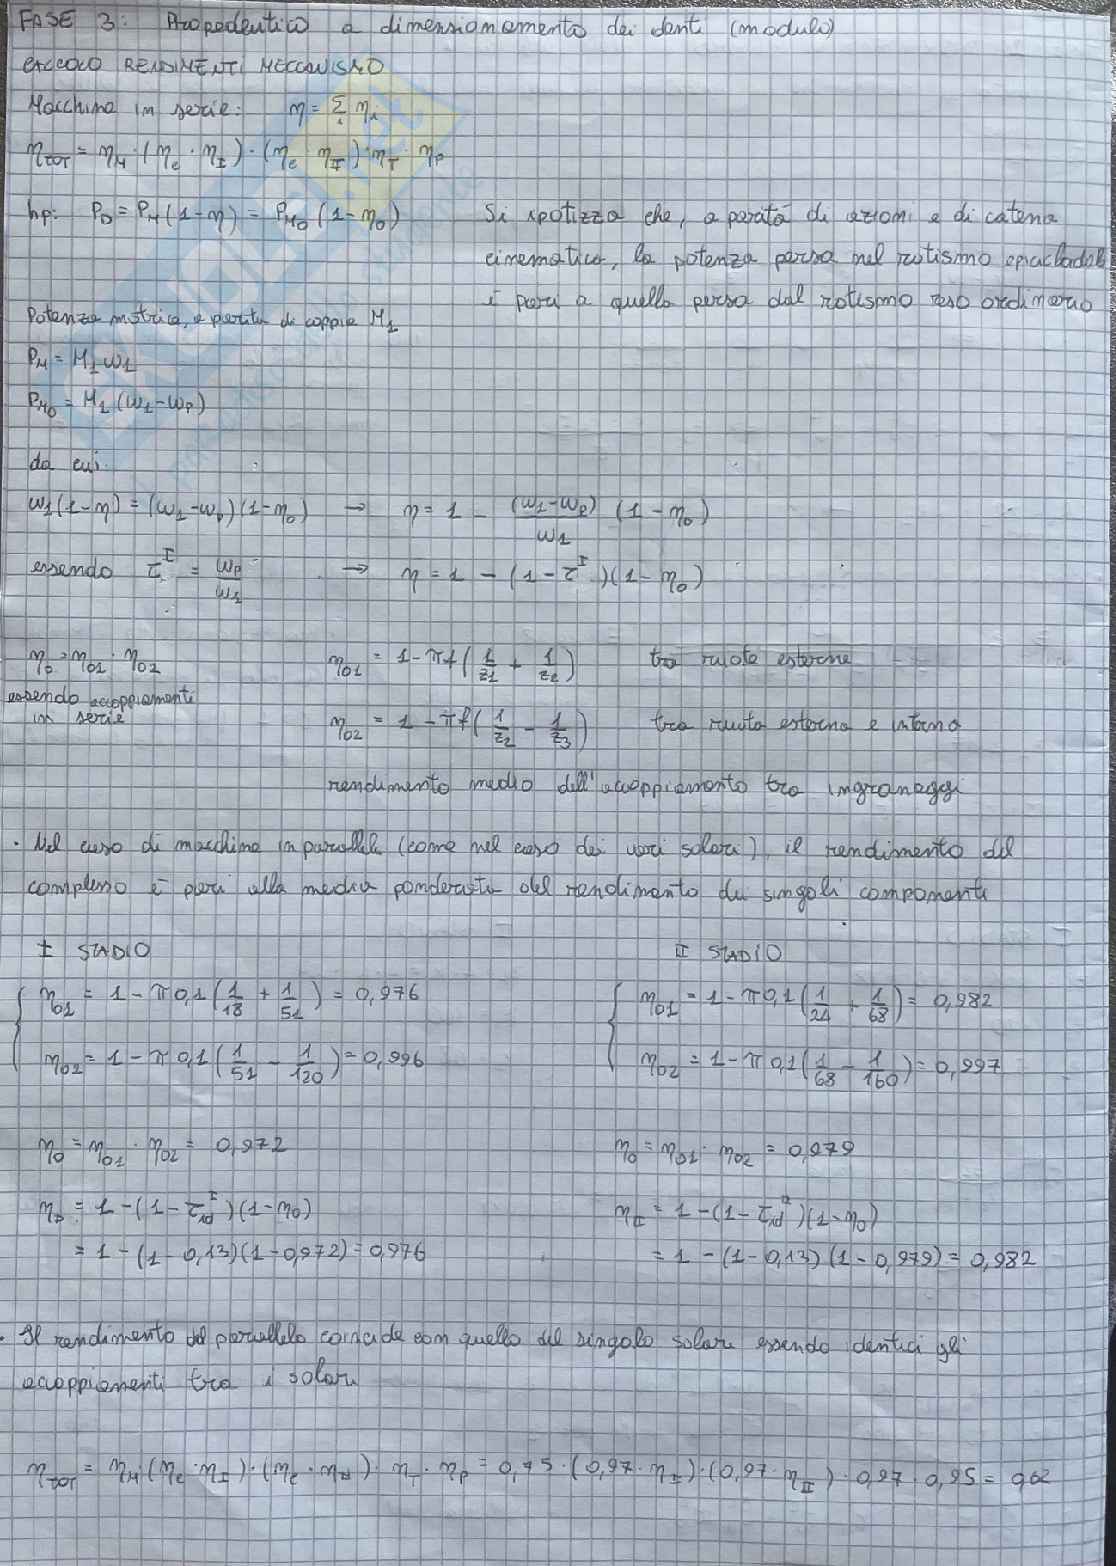 FASE 3: Propedeutico a dimensionamento dei denti (modulo)
CALCOLO RENDIMENTI MECCANISMO
Macchina in serie: η = Σ_i η_i
η_TOT = η_M · (η_c · η_I) · (η_c η_II) · η_T · η_P
hp: P_D = P_M (1-η) = P_M0 (1-η_0) Si ipotizza che, a parità di azioni e di catena
cinematica, la potenza persa nel rotismo epicicloidale
è pari a quella persa dal rotismo reso ordinario
Potenza motrice, a parità di coppia M_1
P_M = M_1 ω_1
P_M0 = M_1 (ω_1 - ω_P)
da cui
ω_1 (1-η) = (ω_1 - ω_P)(1-η_0) → η = 1 - (ω_1-ω_P)/ω_1 (1-η_0)
essendo τ^I = ω_P/ω_1 → η = 1 - (1-τ^I)(1-η_0)
η_0 = η_01 · η_02 η_01 = 1 - πf (1/z_1 + 1/z_2) tra ruote esterne
essendo accoppiamenti
in serie
η_02 = 1 - πf (1/z_2 - 1/z_3) tra ruota esterna e interna
rendimento medio dell'accoppiamento tra ingranaggi
· Nel caso di macchine in parallelo (come nel caso dei vari solari), il rendimento del
complesso è pari alla media ponderata del rendimento dei singoli componenti
I STADIO II STADIO
η_01 = 1 - π 0,1 (1/18 + 1/51) = 0,976 η_01 = 1 - π 0,1 (1/24 + 1/68) = 0,982
η_02 = 1 - π 0,1 (1/51 - 1/120) = 0,996 η_02 = 1 - π 0,1 (1/68 - 1/160) = 0,997
η_0 = η_01 · η_02 = 0,972 η_0 = η_01 · η_02 = 0,979
η_I = 1 - (1-τ_rd^I)(1-η_0) η_II = 1 - (1-τ_rd^II)(1-η_0)
= 1 - (1-0,13)(1-0,972) = 0,976 = 1 - (1-0,13)(1-0,979) = 0,982
· Il rendimento del parallelo coincide con quello del singolo solare essendo identici gli
accoppiamenti tra i solari
η_TOT = η_M (η_c · η_I) · (η_c · η_II) · η_T · η_P = 0,75 · (0,97 · η_I) · (0,97 · η_II) · 0,97 · 0,95 = 0,62